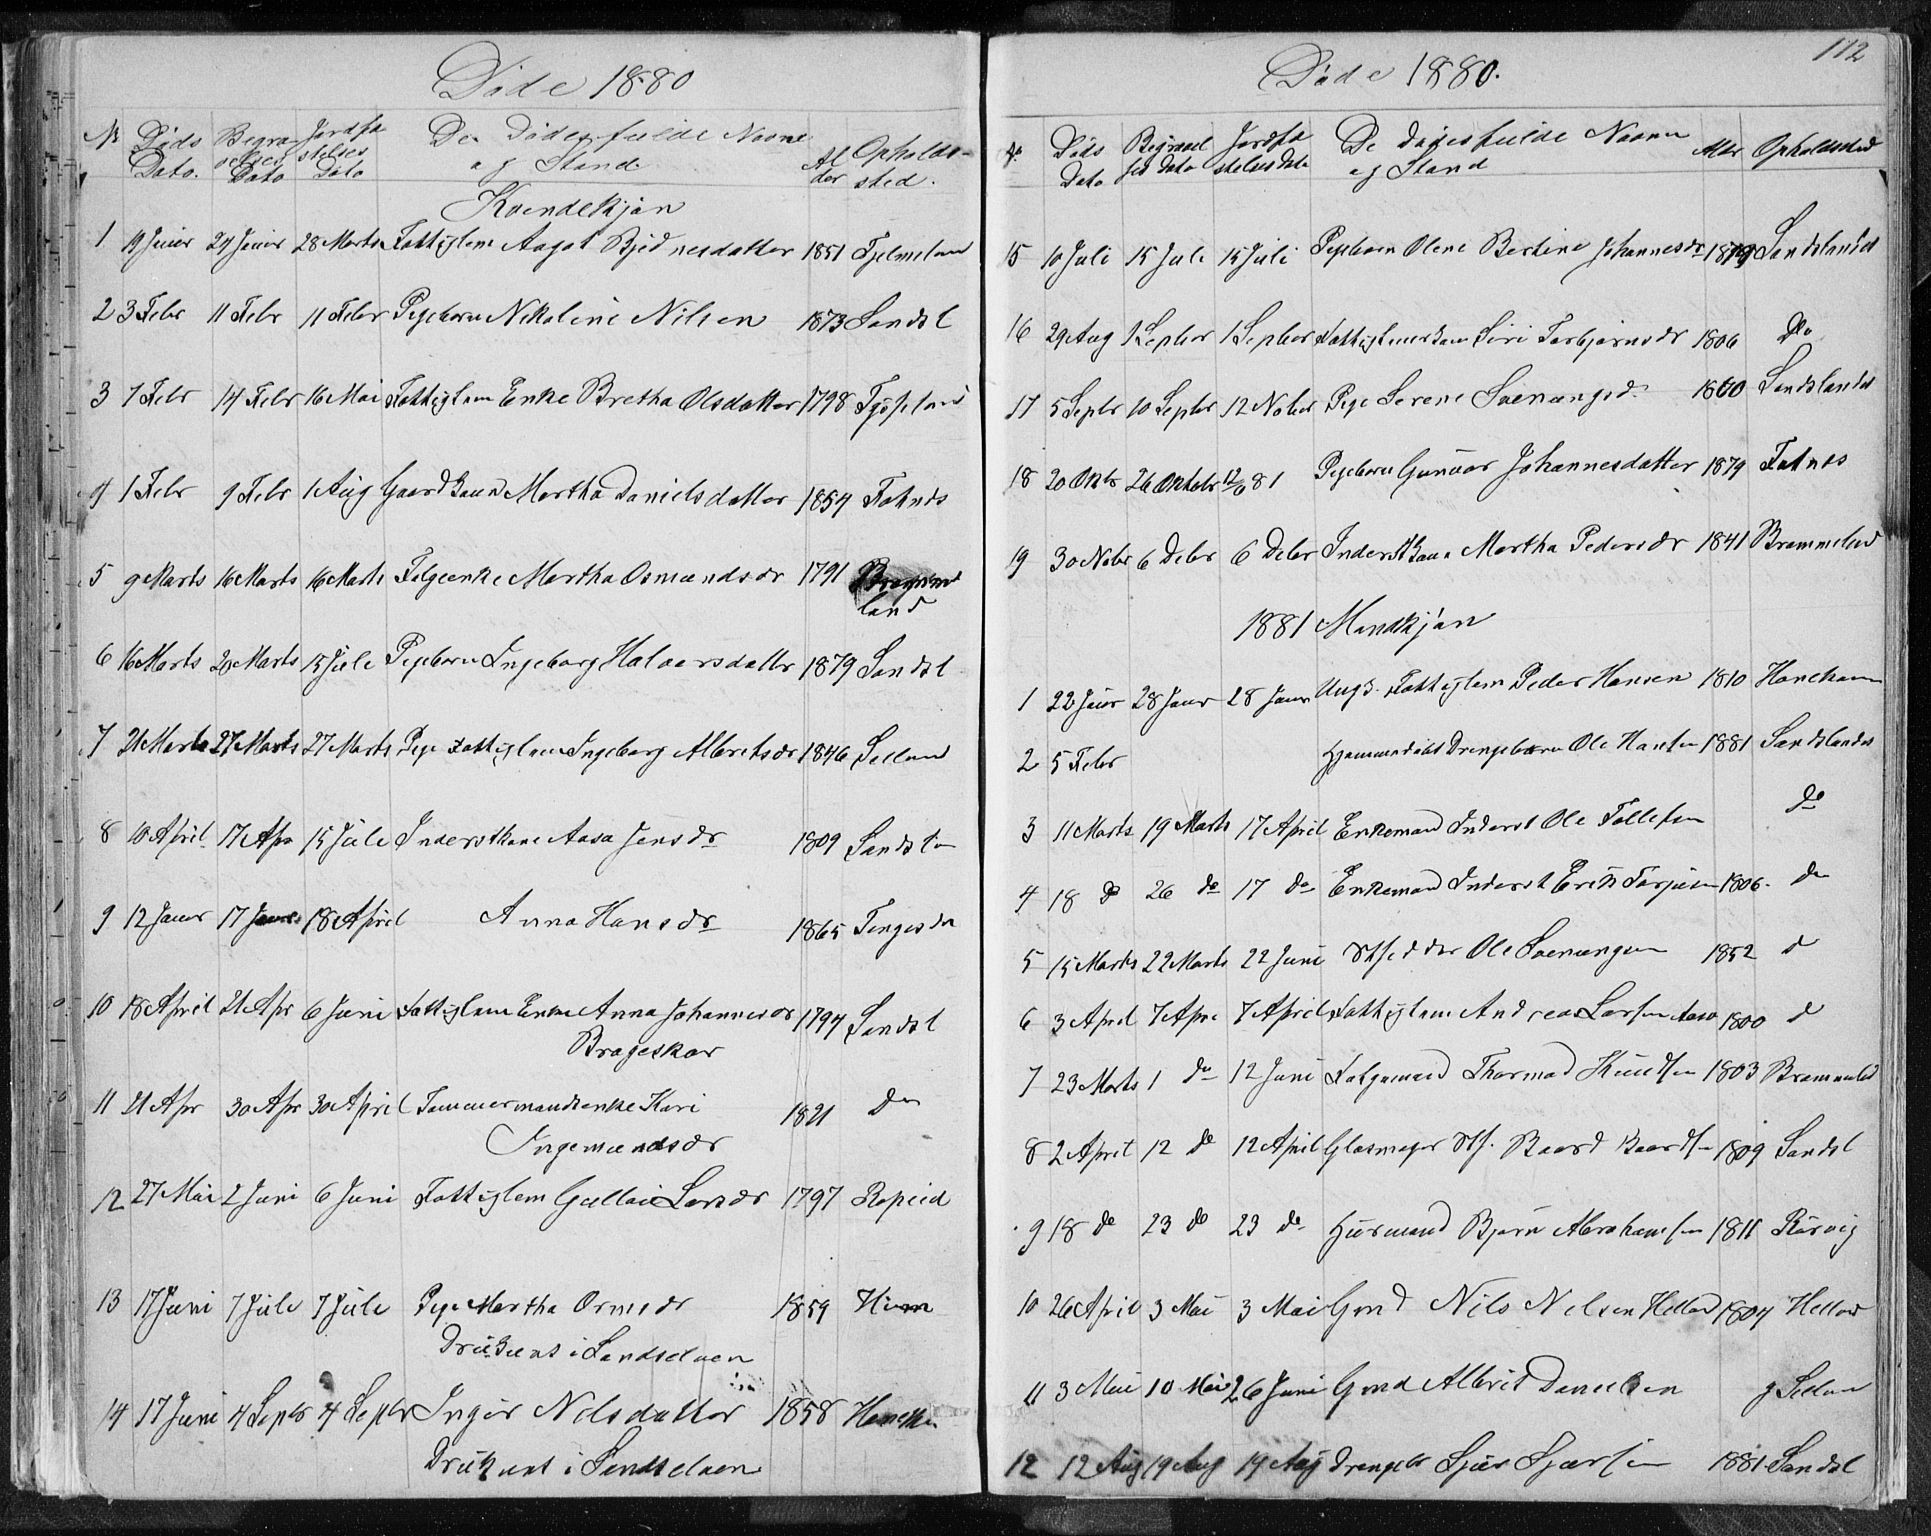 Døde 1880
No Døds Dato. Begravelses Dato Jordfæstelses Dato De Dødes fulde Navne og Stand Alder Opholdssted.
Kvindekjøn
1 19 Januar 24 Januar 28 Marts Fattiglem Aagot Bjørnesdatter 1851 Fjelmeland
2 3 Febr 11 Febr 11 Febr Pigebarn Nikoline Nilsen 1873 Sandsl
3 7 Febr 14 Febr 16 Mai Fattiglem Enke Bretha Olsdatter 1798
4 1 Febr 9 Febr 1 Aug Gaardkone Martha Danielsdatter 1854 Foknæs
5 9 Marts 16 Marts 16 Marts Følgeenke Martha Osmundsdr 1791 Brommeland
6 16 Marts 20 Marts 15 Jule Pigebarn Ingeborg Halvarsdatter 1879 Sandsl
7 21 Marts 27 Marts 27 Marts Pige Fattiglem Ingeborg Albretsdr 1846 Seeland
8 10 April 17 Apr 15 Jule Inderstkone Aasa Jensdr 1809 Sandsl
9 12 Januar 17 Januar 18 April Anna Hansdr 1865
10 18 April 21 Apr 6 Juni Fattiglem Enke Anna Johannesdr 1794 Sandsl
Brageskar
11 21 Apr 30 Apr 30 April Tømmermandsenke Kari 1821 do
Ingemundsdr
12 27 Mai 2 Juni 6 Juni Fattiglem Gullou Larsdr 1797 Ropeid
13 17 Juni 7 Jule 7 Jule Pige Martha Ormsdr 1859 Hiim
Druknet i Sandselven
14 17 Juni 4 Septr 4 Septr Inger Nilsdatter 1858
Druknet i Sandselven
172
Døde 1880.
No Døds Dato Begravelses Dato Jordfæstelses Dato De Dødes fulde Navne og Stand Alder Opholdsted
15 10 Juli 15 Jule 15 Juli Pigebarn Olene Bertine Johannesdr 1879 Sandslandet
16 29 Aug 1 Septbr 1 Septbr Fattiglemskone Siri Torbjørnsdr 1806 Do
17 5 Septbr 10 Septbr 12 Nober Pige Serene Svenungsd. 1860 Sandslandet
18 20 Oktb 26 Oktobr 12/6 81 Pigebarn Gunvor Johannesdatter 1879 Foknæs
19 30 Nober 6 Debr 6 Debr Inderstkone Martha Pedersdr 1841 Brommeland
1881 Mandkjøn
1 22 Januar 28 Januar 28 Januar Ungk. Fattiglem Peder Hansen 1810
2 5 Febr Hjemmedøbt Drengebarn Ole Hansen 1881 Sandslandet
3 11 Marts 19 Marts 17 April Enkemand Inderst Ole Tollefsen do
4 18 do 26 do 17 do Enkemand Inderst Erik Torjusen 1806. do
5 15 Marts 22 Marts 22 Juni Ole Svenungsen 1852 d
6 3 April 7 Apr 7 April Fattiglem Andreas Larsen Aasv 1800 d
7 23 Marts 1 do 12 Juni Følgemand Thormod Knudsen 1803 Brommeland
8 2 April 12 do 12 April Glasmager Baard Baardsen 1809 Sandsl
9 18 do 23 do 23 do Huusmand Bjørn Abrahamsen 1811 Rørvig
10 26 April 3 Mai 3 Mai Gmd Nils Nilsen Helland 1804 Helland
11 3 Mai 10 Mai 26 Juni Gmd Albrit Danielsen
12 12 Aug 19 Aug 19 Aug Drengeb 1881 Sandsl